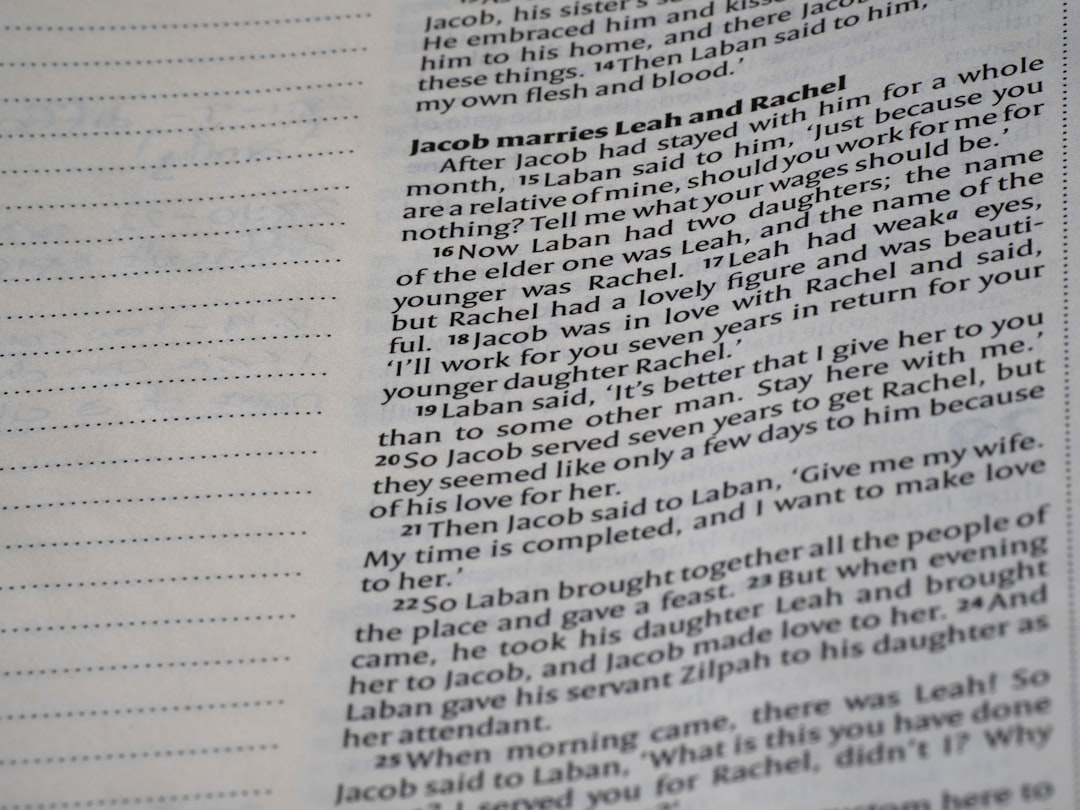 Jacob, his sister's
He embraced him and
him to his home, and there Jacob
these things. 14Then Laban said to him,
my own flesh and blood.'
Jacob marries Leah and Rachel
After Jacob had stayed with him for a whole
month, 15Laban said to him, 'Just because you
are a relative of mine, should you work for me for
nothing? Tell me what your wages should be.'
16Now Laban had two daughters; the name
of the elder one was Leah, and the name of the
younger was Rachel. 17Leah had weaka eyes,
but Rachel had a lovely figure and was beauti-
ful. 18Jacob was in love with Rachel and said,
'I'll work for you seven years in return for your
younger daughter Rachel.'
19Laban said, 'It's better that I give her to you
than to some other man. Stay here with me.'
20So Jacob served seven years to get Rachel, but
they seemed like only a few days to him because
of his love for her.
21Then Jacob said to Laban, 'Give me my wife.
My time is completed, and I want to make love
to her.'
22So Laban brought together all the people of
the place and gave a feast. 23But when evening
came, he took his daughter Leah and brought
her to Jacob, and Jacob made love to her. 24And
Laban gave his servant Zilpah to his daughter as
her attendant.
25When morning came, there was Leah! So
Jacob said to Laban, 'What is this you have done
I served you for Rachel, didn't I? Why
here to